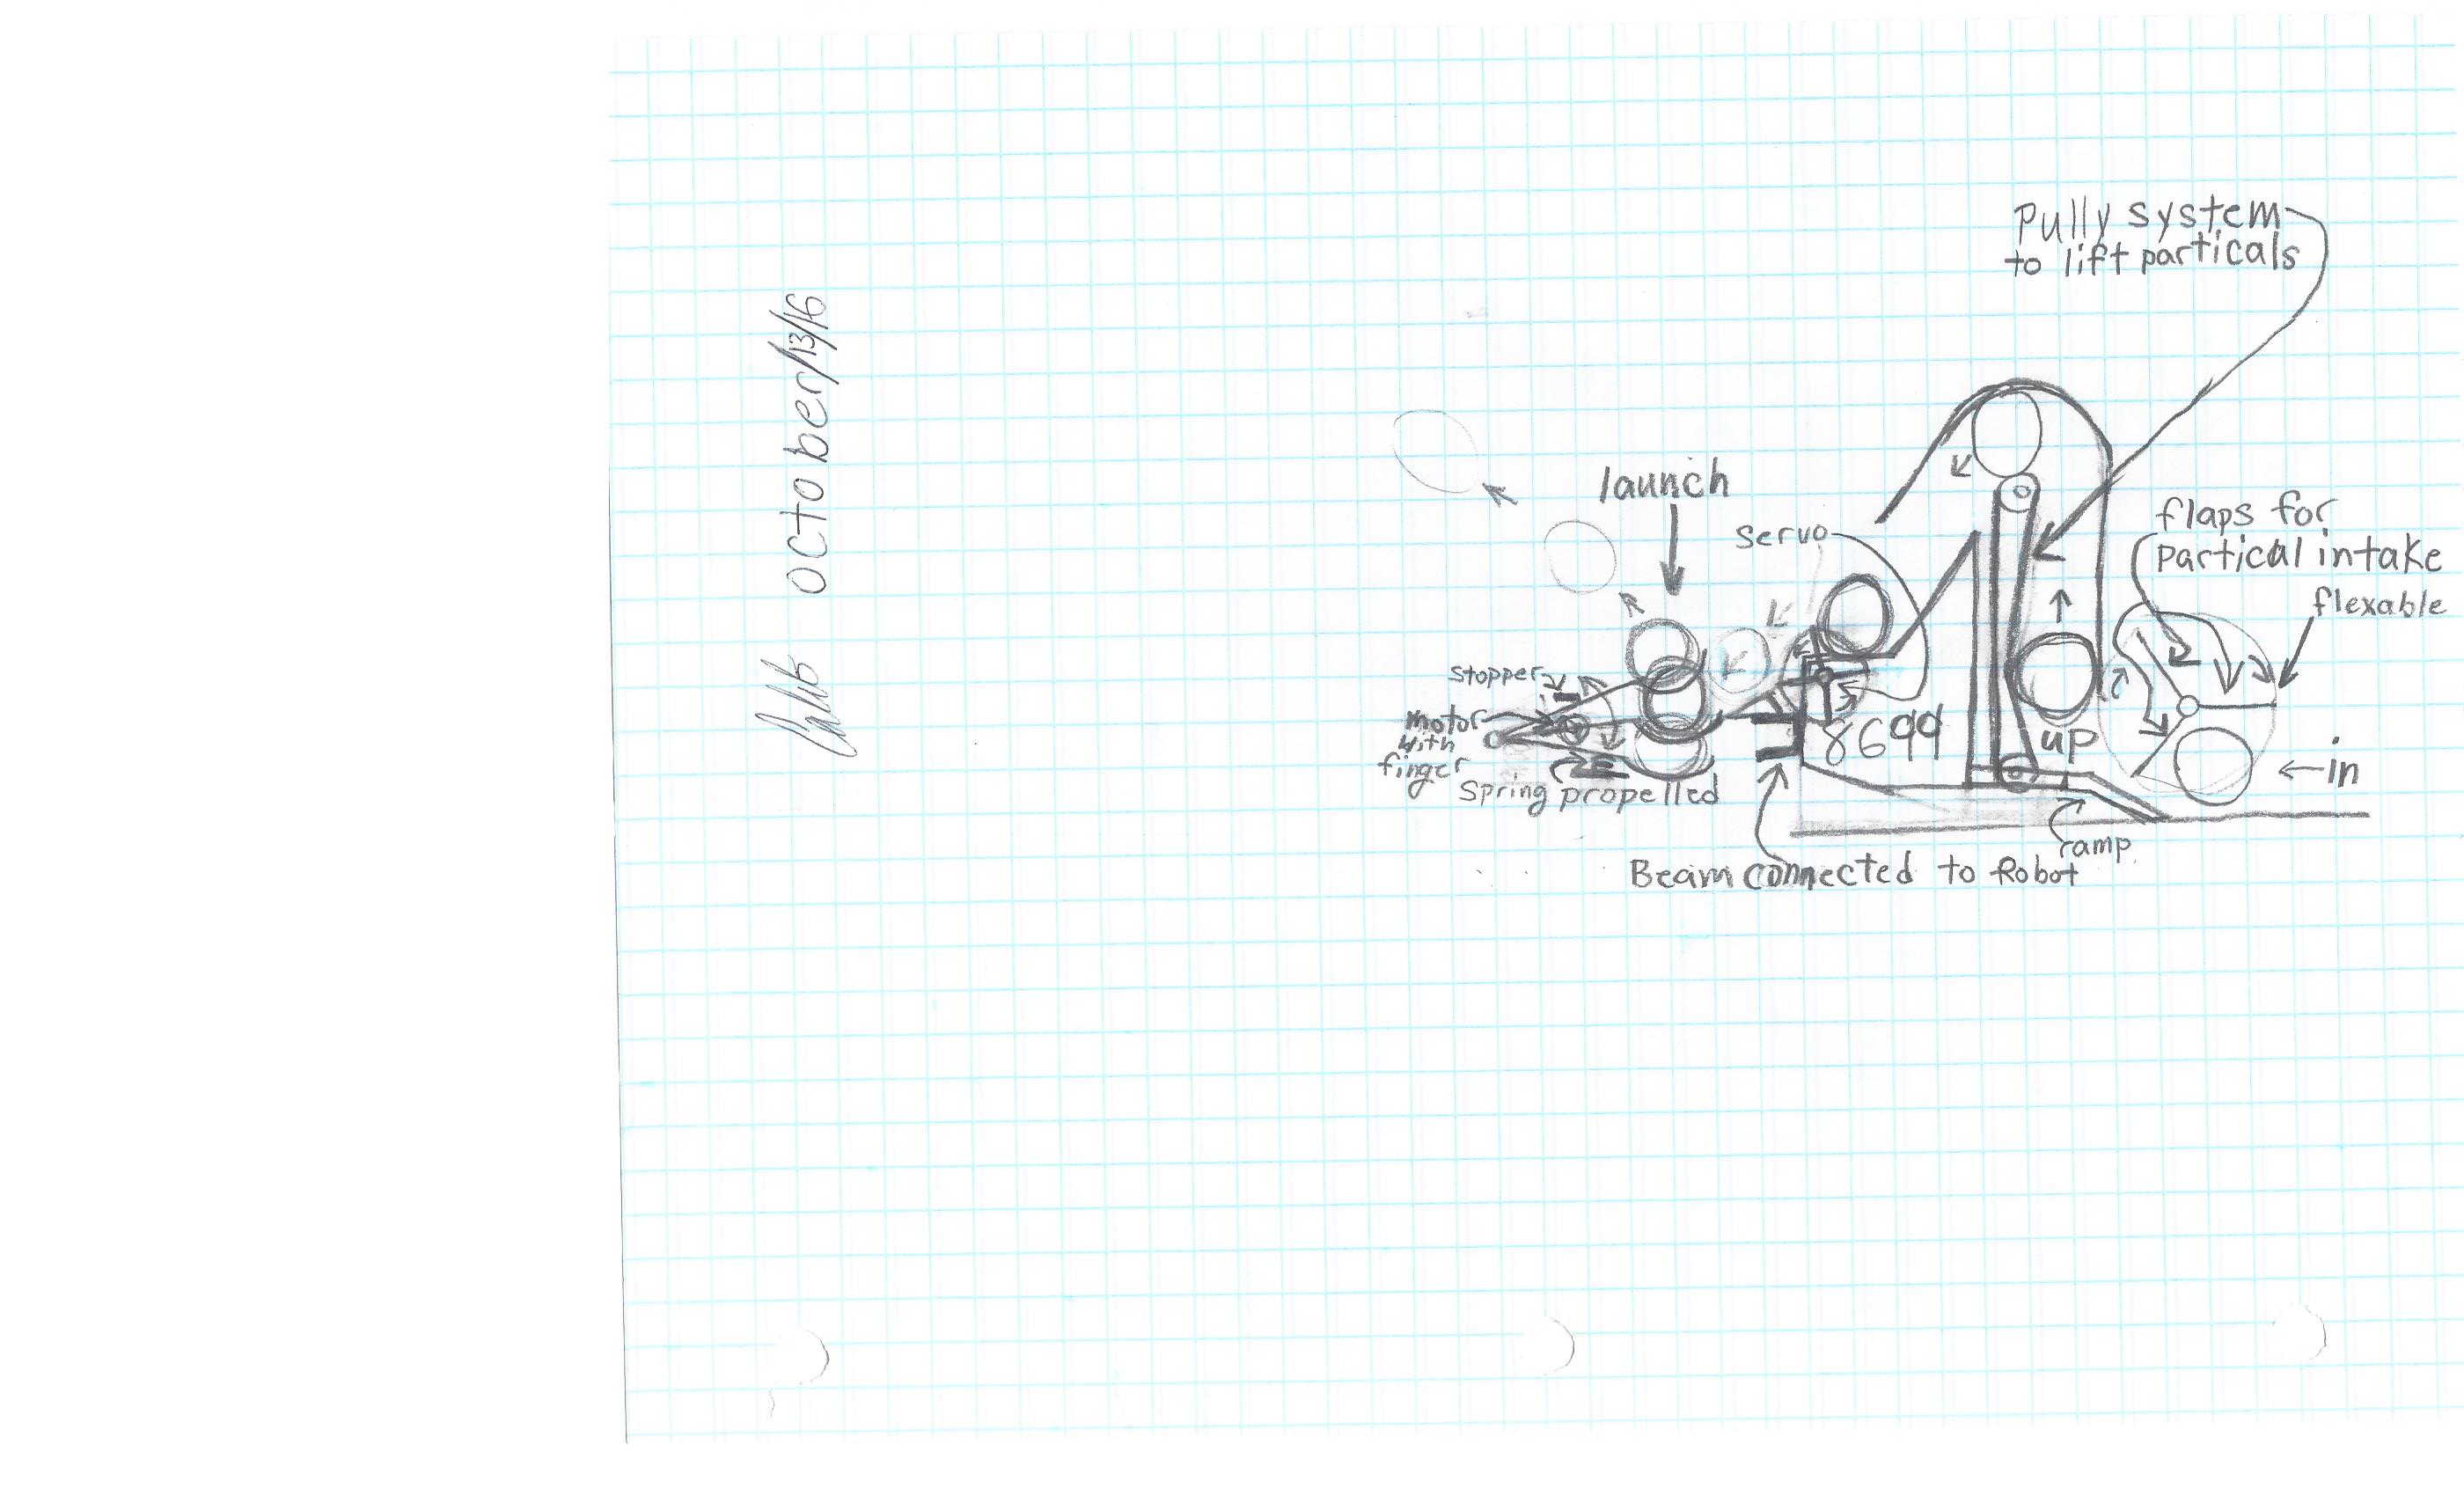 October/13/16
Pully system
to lift particals
launch
servo
flaps for
partical intake
flexable
stopper
motor
with
finger
Spring propelled
8699
up
in
ramp
Beam connected to Robot